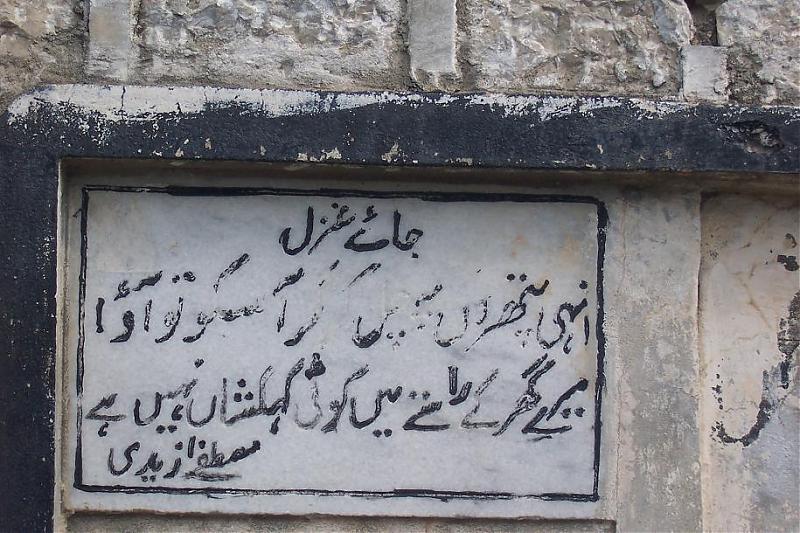 جائے غزل
انہی پتھروں میں گر آسکو تو آؤ
میرے گھر کے راستے میں کوئی کہکشاں نہیں ہے
مصطفےٰ زیدی